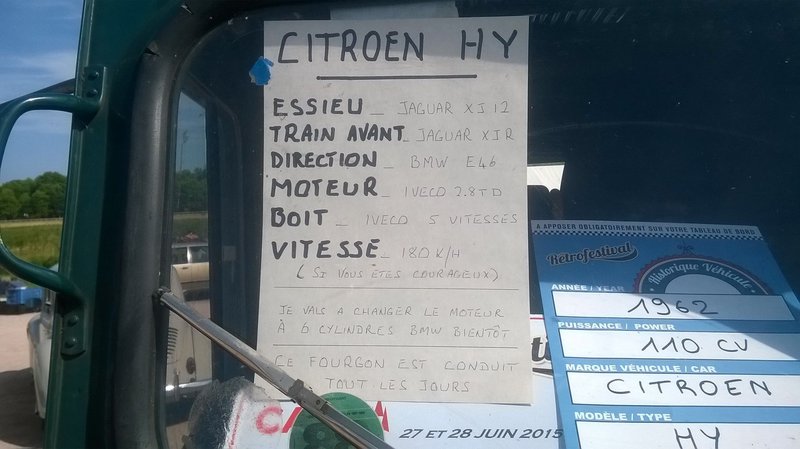 CITROEN HY
ESSIEU _ JAGUAR XJ12
TRAIN AVANT _ JAGUAR XJR
DIRECTION _ BMW E46
MOTEUR _ IVECO 2.8TD
BOIT _ IVECO 5 VITESSES
VITESSE _ 180 K/H
(SI VOUS ETES COURAGEUX)
JE VAIS A CHANGER LE MOTEUR
À 6 CYLINDRES BMW BIENTÔT
CE FOURGON EST CONDUIT
TOUT LES JOURS
27 ET 28 JUIN 2015
A APPOSER OBLIGATOIREMENT SUR VOTRE TABLEAU DE BORD
Retrofestival
Historique Véhicule
ANNÉE / YEAR
1962
PUISSANCE / POWER
110 CV
MARQUE VÉHICULE / CAR
CITROEN
MODÈLE / TYPE
HY